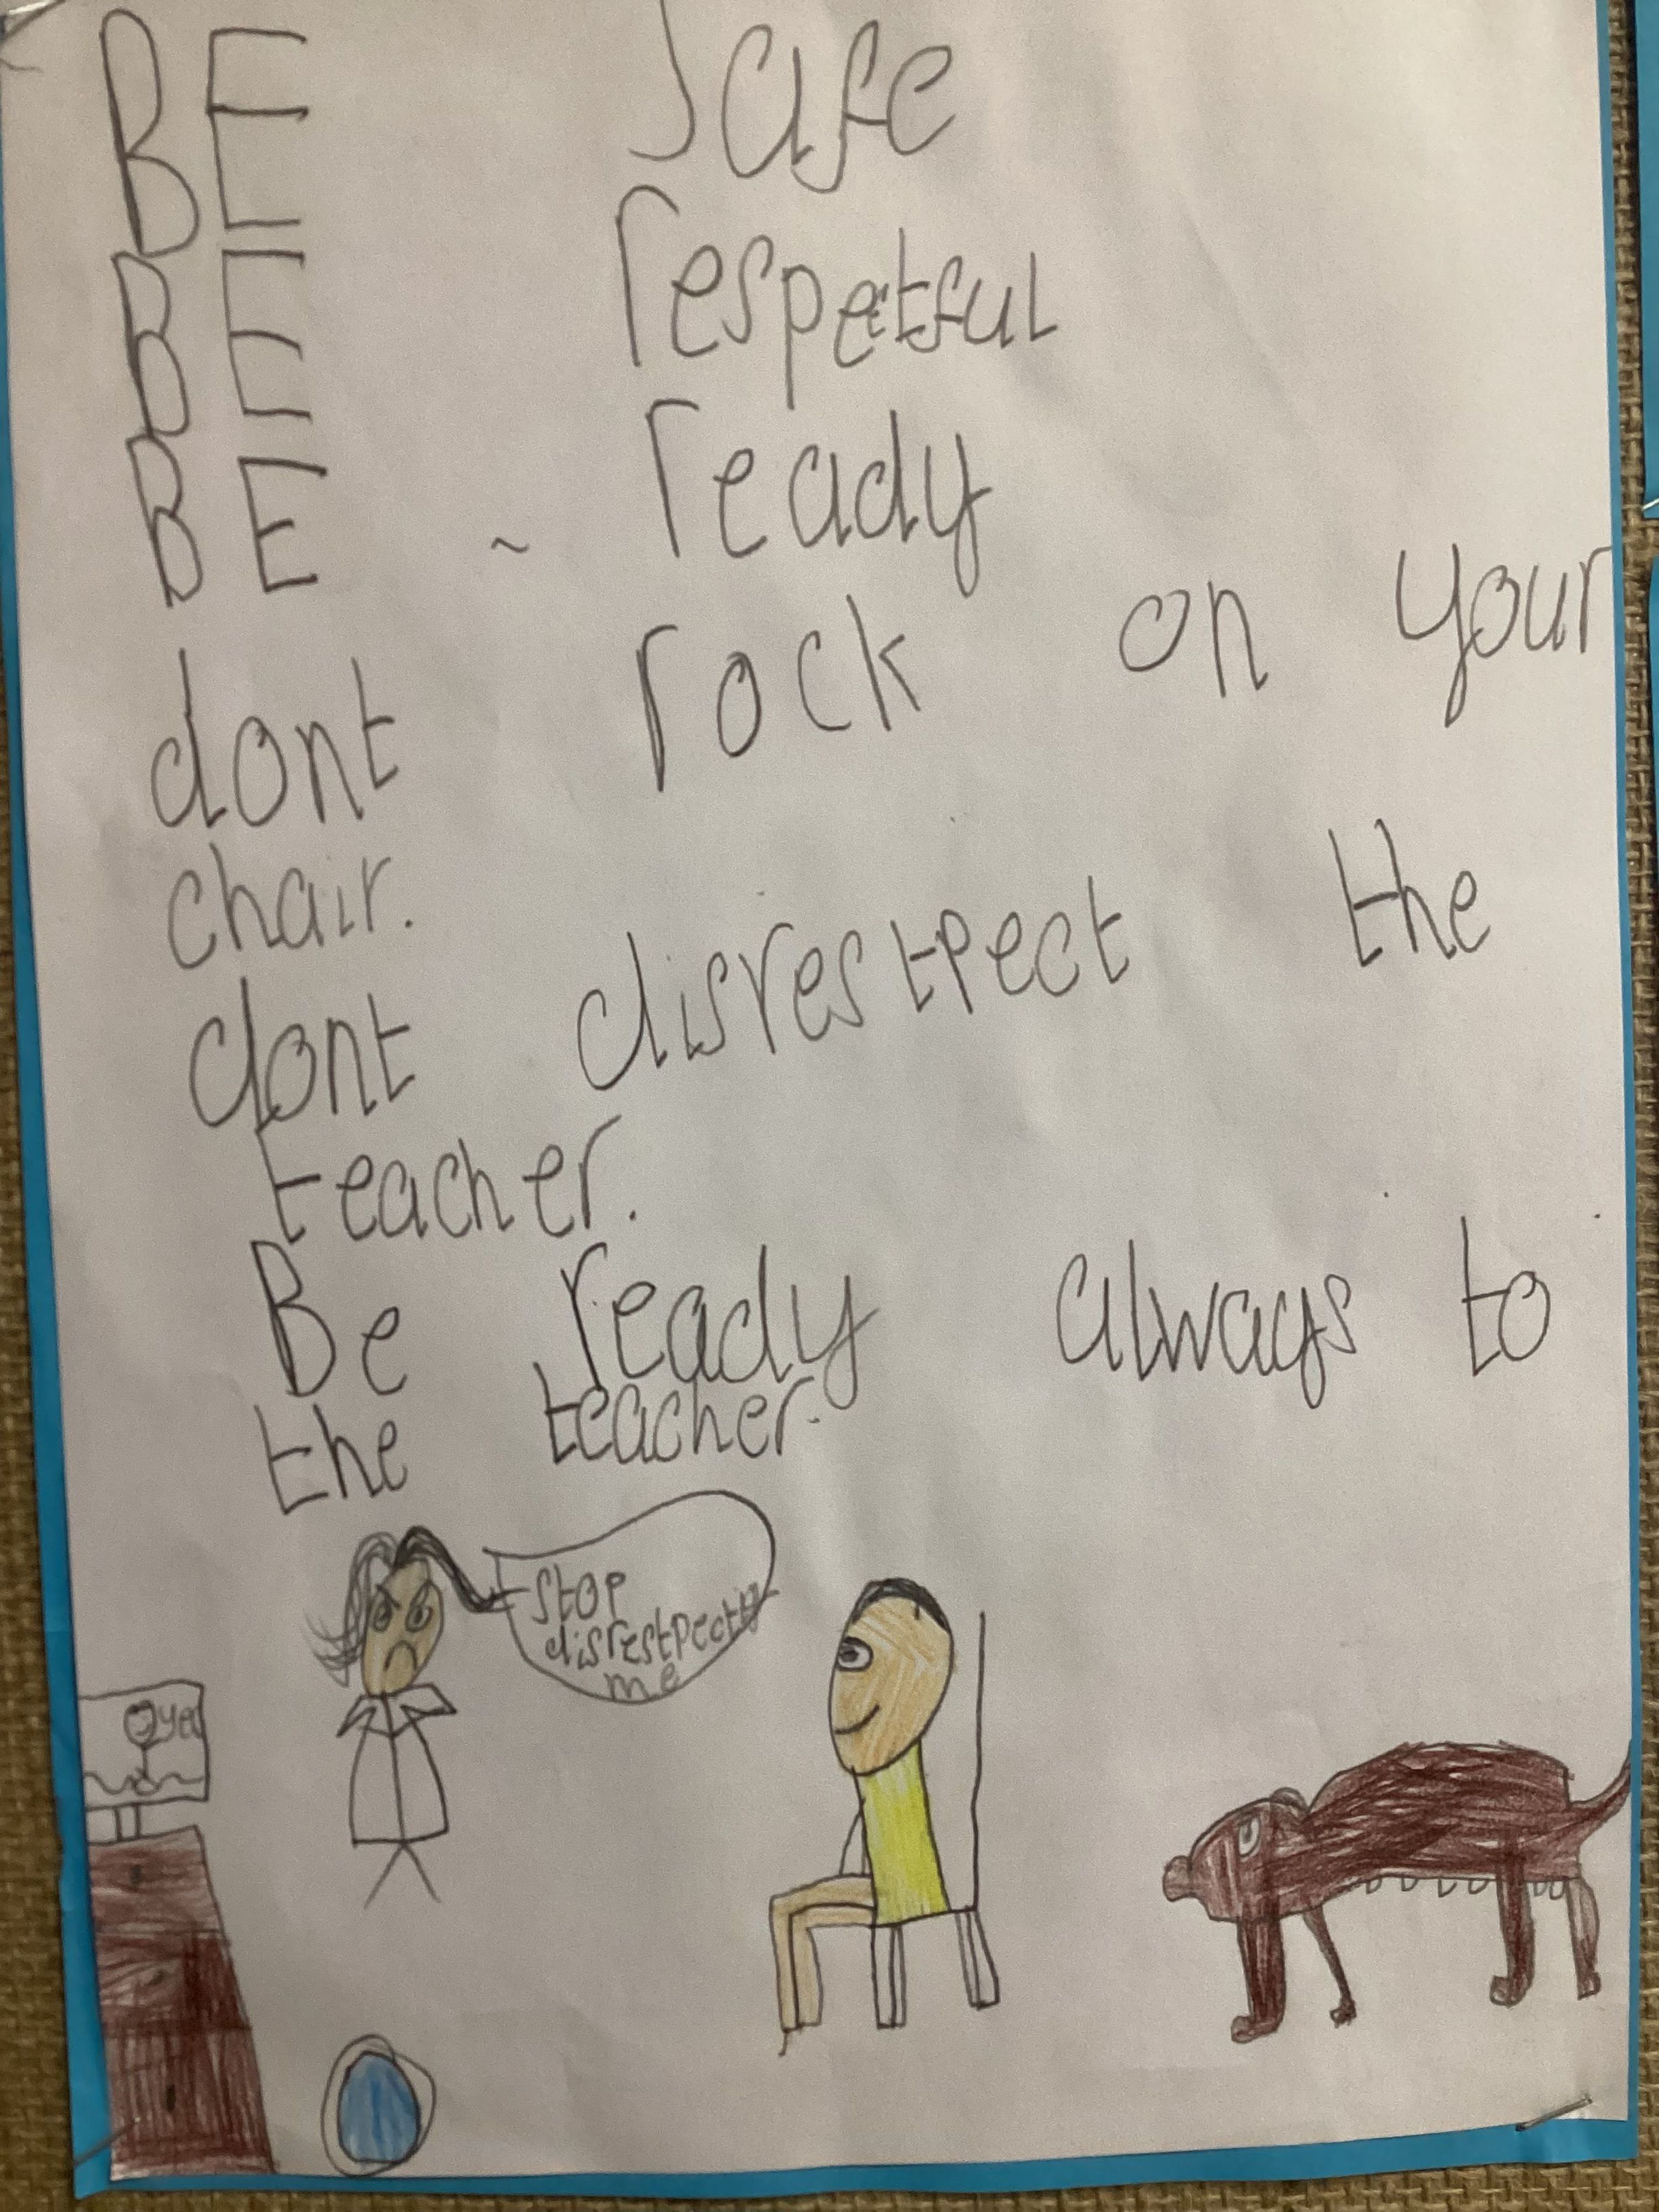 BE safe
BE respectful
BE ready
dont rock on your
chair.
dont disrestpect the
teacher.
Be ready always to
the teacher.
stop
me